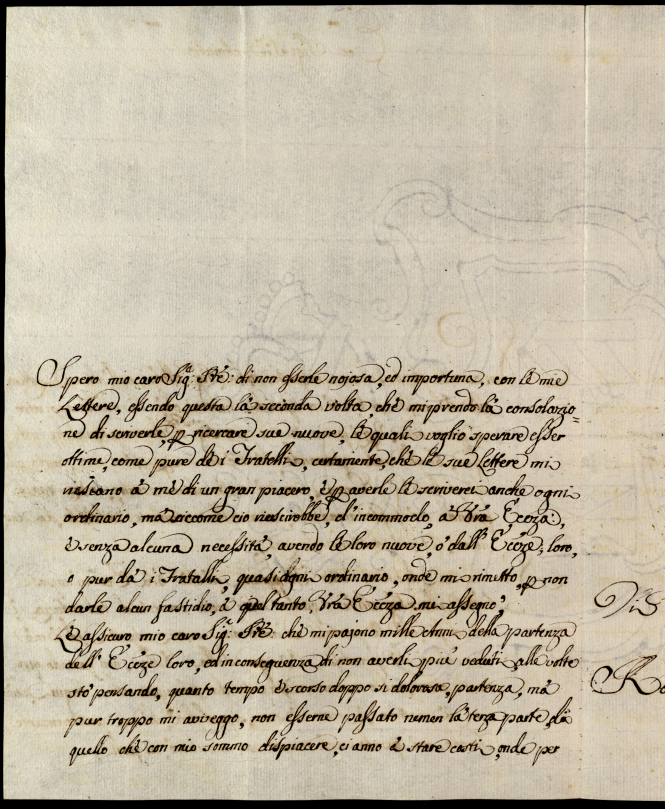 Spero mio caro Sigr: Pré: di non esserle nojosa, ed importuna, con le mie
Lettere, essendo questa la seconda volta, che mi prendo la consolazio=
ne di scriverle, p ricercare sue nuove, le quali voglio sperare esser
ottime, come pure de i Fratelli, certamente, che le sue Lettere mi
riescano à mè di un gran piacere, è p averle le scriverei anche ogni
ordinario, mà siccome cio riescirobbe, d'incommodo, à Vrà Ecceza:,
è senza alcuna necessità, avendo le loro nuove, ò dall' Ecceze: loro,
o pur dà i Fratelli, quasi dgni ordinario, onde mi rimetto, p non
darle alcun fastidio, à quel tanto, Vrà Ecceza mi assegnò;
Lè assicuro mio caro Sigr: Pré: che mi pajono mille Anni della partenza
dell' Ecceze loro, ed in conseguenza di non averli più veduti, alle volte
stò pensando, quanto tempo è scorso doppo si dolorosa, partenza, mà
pur troppo mi avveggo, non esserne passato nemen la terza parte, dà
quello chè con mio sommo dispiacere, ci anno à stare costi, onde per